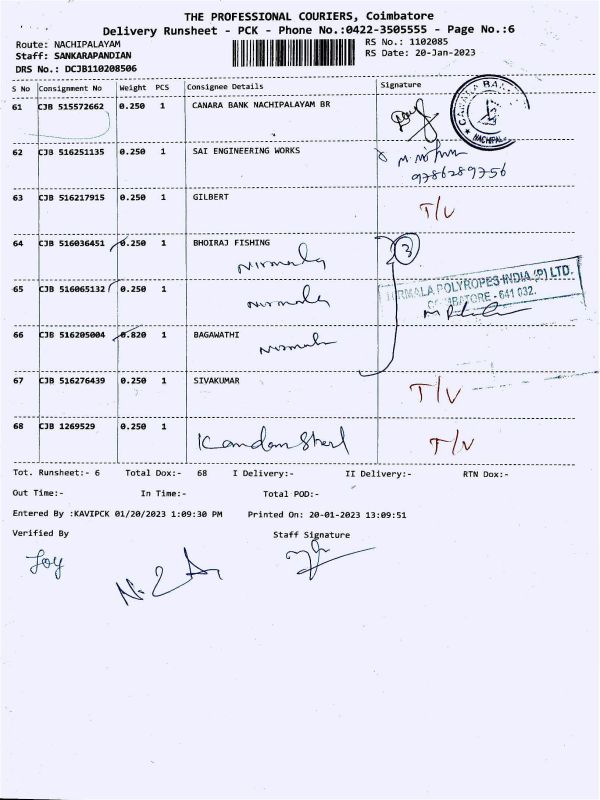 THE PROFESSIONAL COURIERS, Coimbatore
Delivery Runsheet - PCK - Phone No.:0422-3505555 - Page No.:6
Route: NACHIPALAYAM
RS No.: 1102085
Staff: SANKARAPANDIAN
RS Date: 20-Jan-2023
DRS No.: DCJB110208506
S No Consignment No Weight PCS Consignee Details Signature
61 CJB 515572662 0.250 1 CANARA BANK NACHIPALAYAM BR
62 CJB 516251135 0.250 1 SAI ENGINEERING WORKS
9786289756
63 CJB 516217915 0.250 1 GILBERT T/V
64 CJB 516036451 0.250 1 BHOIRAJ FISHING 3
Nirmala
65 CJB 516065132 0.250 1
Nirmala
NIRMALA POLYROPES INDIA (P) LTD.
COIMBATORE - 641 032.
66 CJB 516205004 0.820 1 BAGAWATHI
Nirmala
67 CJB 516276439 0.250 1 SIVAKUMAR T/V
68 CJB 1269529 0.250 1 T/V
Tot. Runsheet:- 6 Total Dox:- 68 I Delivery:- II Delivery:- RTN Dox:-
Out Time:- In Time:- Total POD:-
Entered By :KAVIPCK 01/20/2023 1:09:30 PM Printed On: 20-01-2023 13:09:51
Verified By Staff Signature
Joy